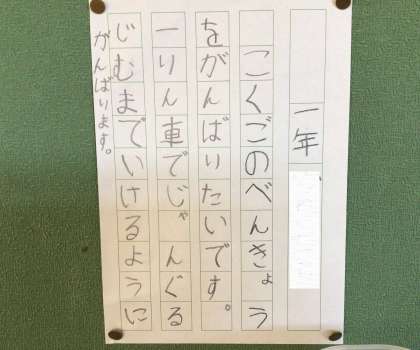 一年
こくごのべんきょう
をがんばりたいです。
一りん車でじゃんぐる
じむまでいけるように
がんばります。